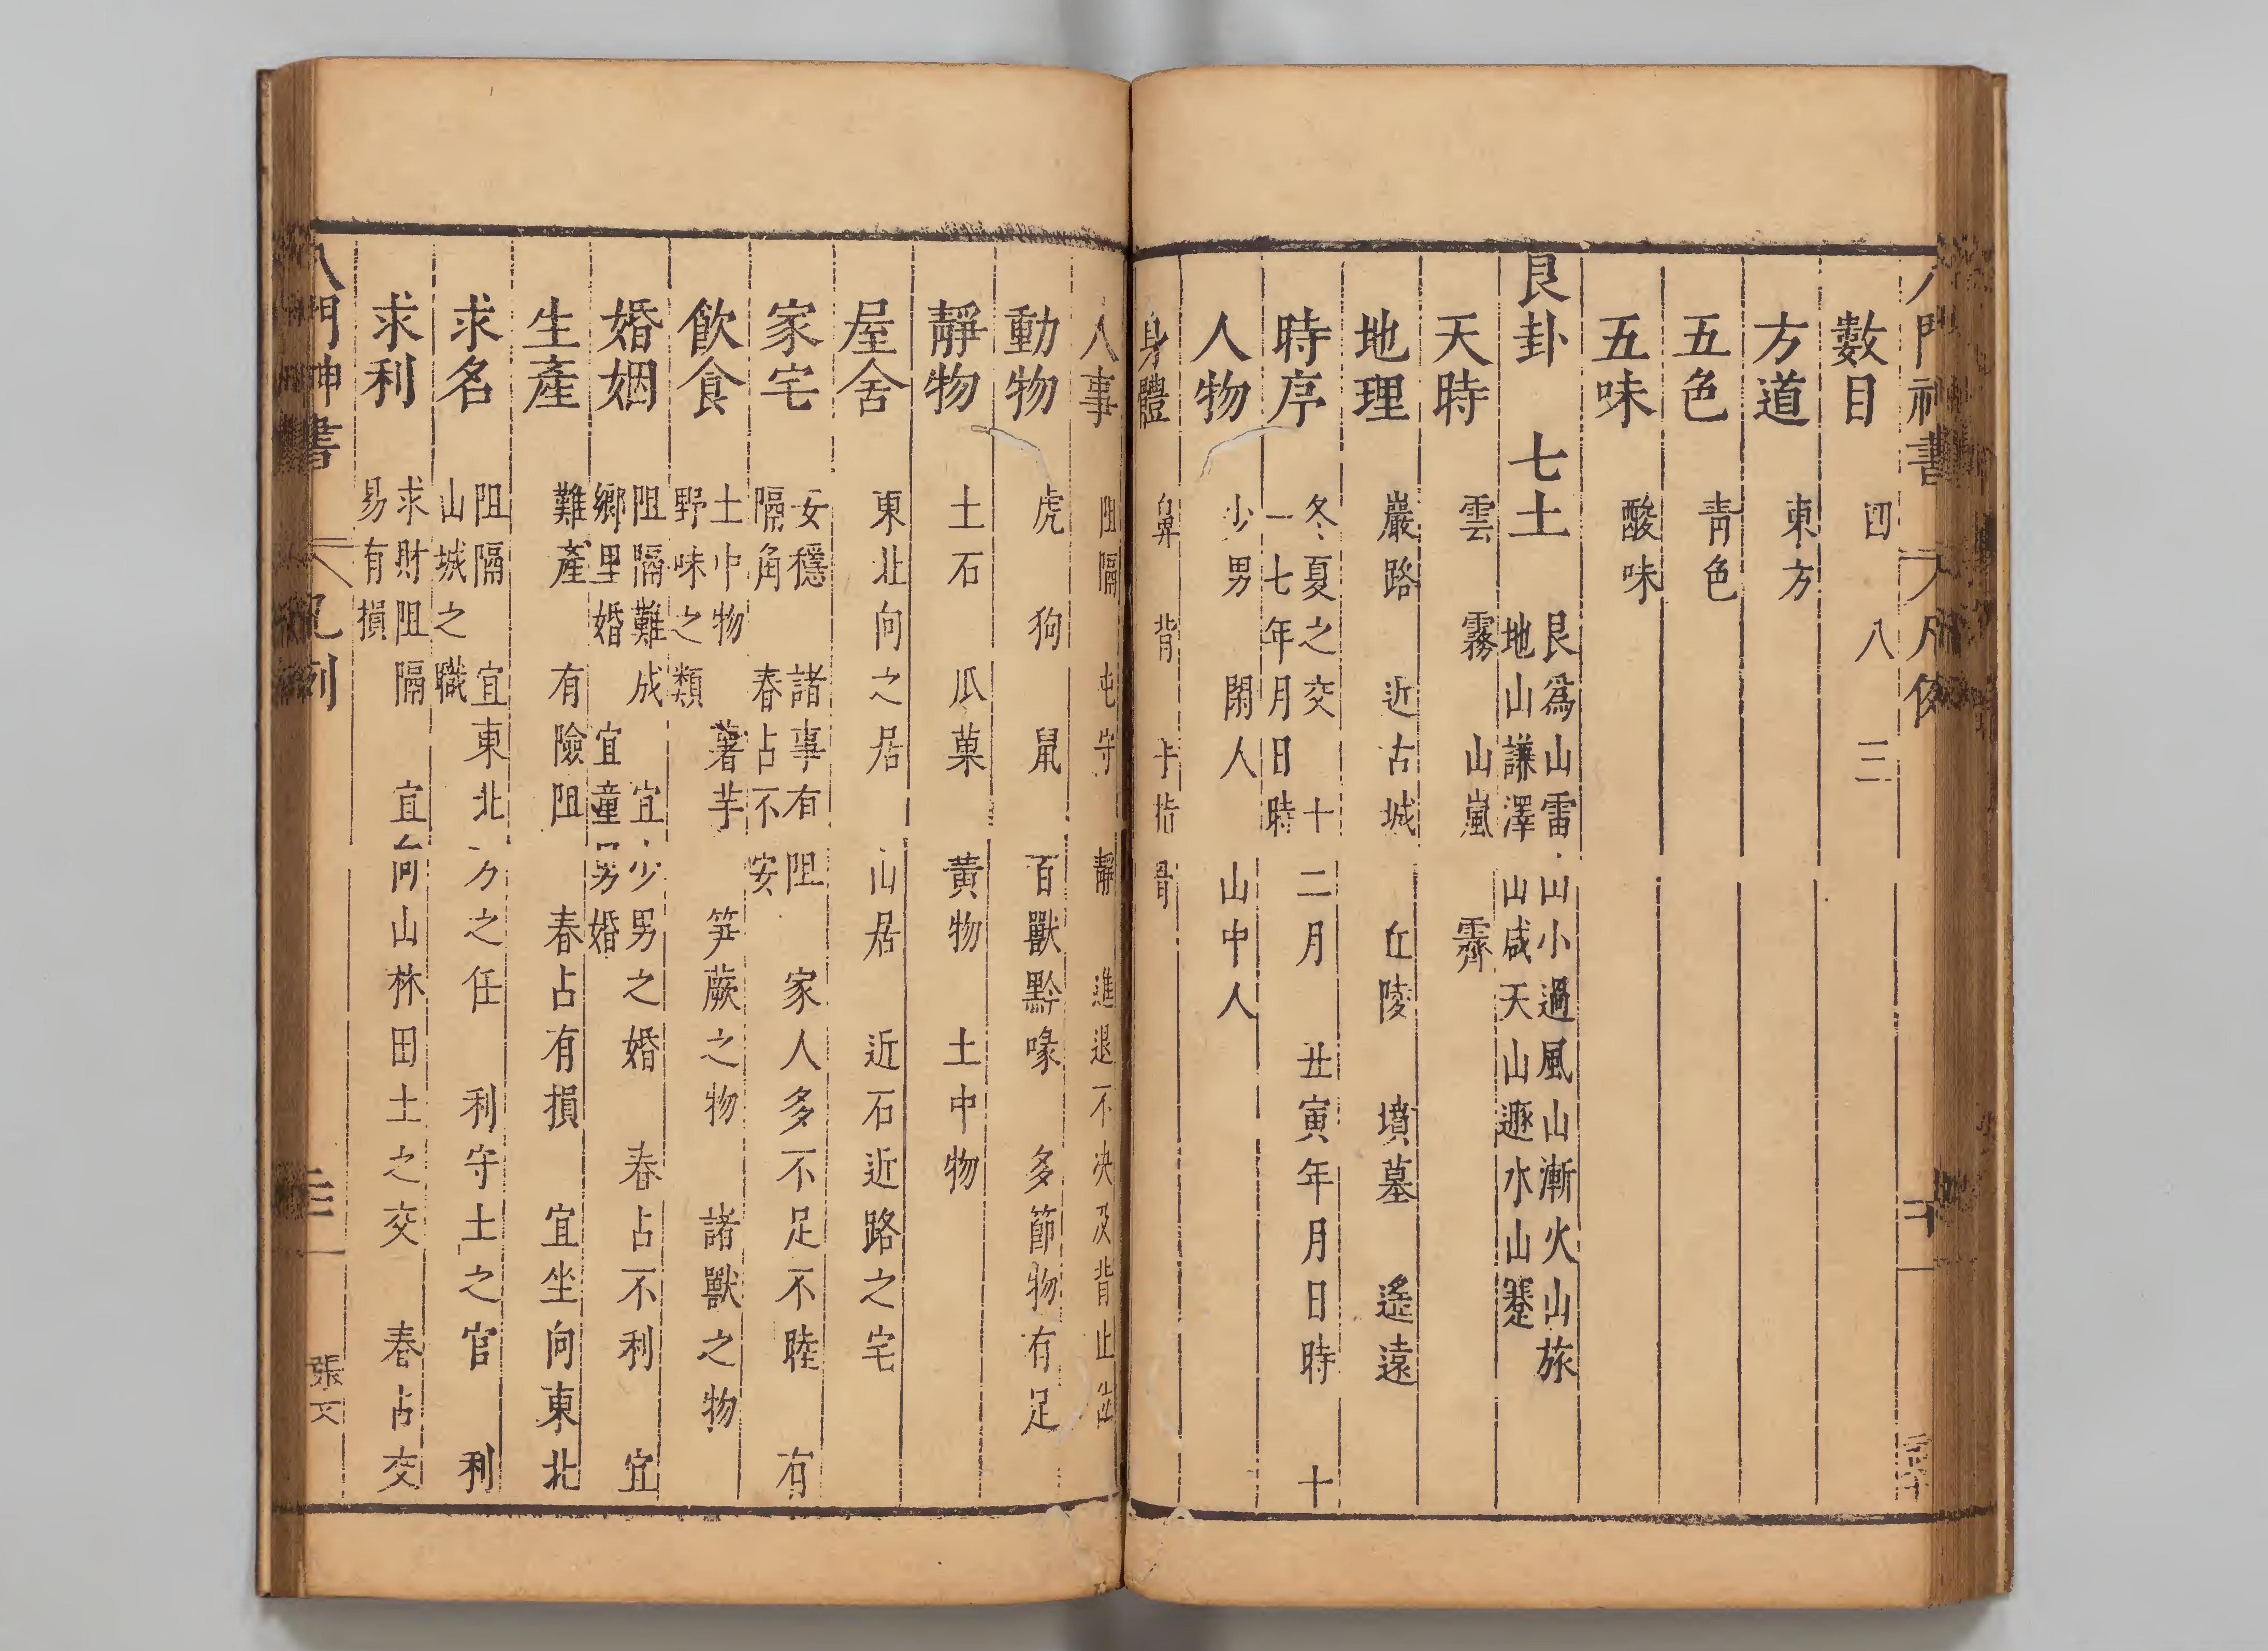 數目 四 八 三
方道 東方
五色 青色
五味 酸味
艮卦 七 土 艮爲山雷山小過風山漸火山旅
地山謙澤山咸天山遯水山蹇
天時 雲 霧 山嵐 霽
地理 巖路 近古城 丘陵 墳墓 遙遠
時序 冬夏之交 十二月 丑寅年月日時 十
一七年月日時
人物 少男 閑人 山中人
身體 鼻 背 手指 骨
人事 阻隔 屯守 靜 進退不决及背止
動物 虎 狗 鼠 百獸黔喙 多節物有足
靜物 土石 瓜菓 黃物 土中物
屋舍 東北向之居 山居 近石近路之宅
家宅 安穩 諸事有阻 家人多不足不睦 有
隔角 春占不安
飲食 土中物 薯芋 笋蕨之物 諸獸之物
野味之類
婚姻 阻隔難成 宜少男之婚 春占不利 宜
鄉里婚 宜童男婚
生產 難產 有險阻 春占有損 宜坐向東北
求名 阻隔 宜東北方之任 利守土之官 利
山城之職
求利 求財阻隔 宜向山林田土之交 春占交
易有損
八門神書
張文